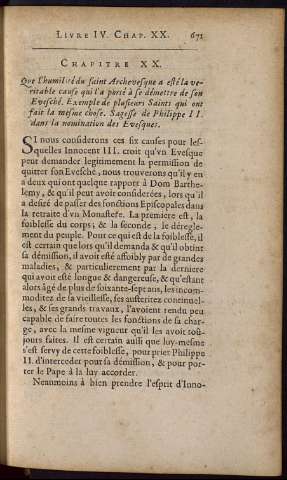 LIVRE IV. CHAP. XX. 671
CHAPITRE XX.
Que l'humilité du saint Archevesque a esté la ve-
ritable cause qui l'a porté à se démettre de son
Evesché. Exemple de plusieurs Saints qui ont
fait la mesme chose. Sagesse de Philippe II.
dans la nomination des Evesques.
SI nous considerons ces six causes pour les-
quelles Innocent III. croit qu'vn Evesque
peut demander legitimement la permission de
quitter son Evesché, nous trouverons qu'il y en
a deux qui ont quelque rapport à Dom Barthe-
lemy, & qu'il peut avoir considerées, lors qu'il
a desiré de passer des fonctions Episcopales dans
la retraite d'vn Monastere. La premiere est, la
foiblesse du corps; & la seconde, le déregle-
ment du peuple. Pour ce qui est de la foiblesse, il
est certain que lors qu'il demanda & qu'il obtint
sa démission, il avoit esté affoibly par de grandes
maladies, & particulierement par la derniere
qui avoit esté longue & dangereuse, & qu'estant
alors âgé de plus de soixante-sept ans, les incom-
moditez de la vieillesse, ses austeritez continuel-
les, & ses grands travaux, l'avoient rendu peu
capable de faire toutes les fonctions de sa char-
ge, avec la mesme vigueur qu'il les avoit toû-
jours faites. Il est certain aussi que luy-mesme
s'est servy de cette foiblesse, pour prier Philippe
II. d'interceder pour sa démission, & pour por-
ter le Pape à la luy accorder.
Neanmoins à bien prendre l'esprit d'Inno-